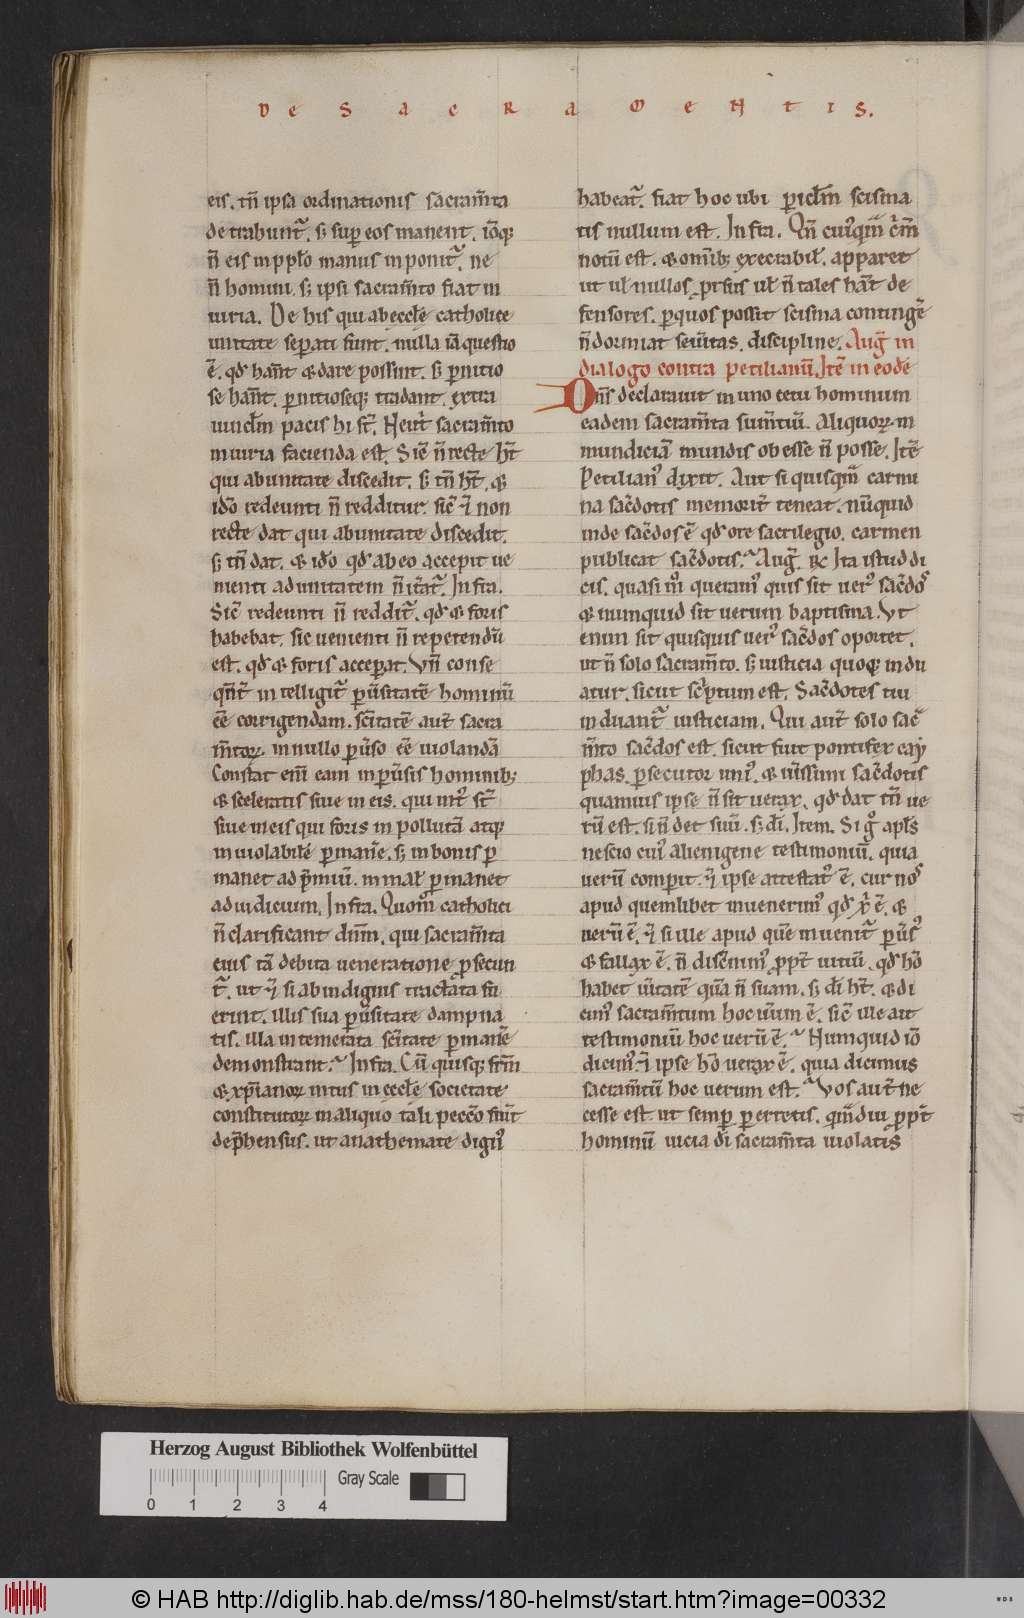 DE SACRAMENTIS.
eis. tñ ipsa ordinationis sacram̃ta
detrabunt᷑. s; super eos manent. iõq;
ñ eis in pplo manus inponit᷑. ne
ñ homini. s; ipsi sacram̃to fiat in
iuria. De his qui ab eccłe catholice
unitate sep̱arati sunt. nulla iã questio
ẽ. qđ hñt & dare possint. s; p̱nitio
se hñt. p̱nitioseq; tradant. extra
uinclm̃ pacis hi st̃. Neut̃ sacram̃to
iniuria facienda est. Sic̃ ñ recte ht̃
qui ab unitate discedit. s; tñ ht̃. &
iđo redeunti ñ redditur. sic̃ & non
recte dat qui ab unitate discedit.
s; tñ dat. & iđo qđ ab eo accepit ue
nienti ad unitatem ñ it̃at᷑. Infra.
Sic̃ redeunti ñ reddit᷑. qđ & foris
habebat. sic uenienti ñ repetendũ
est. qđ & foris acceperat. Vñ conse
qñt̃ intelligit᷑ p̱ũsitatẽ hominũ
ẽe corrigendam. sc̃itatẽ aut̃ sacra
m̃torꝝ. in nullo p̱ũso ẽe uiolandã
Constat em̃ eam in p̱ũsis hominib;
& sceleratis siue in eis. qui int᷒ st̃
siue in eis qui foris inpollutã atq;
inuiolabilẽ p̱manẽe. s; in bonis p̱
manet ad p̃miũ. in mał p̱manet
ad iudicium. Infra. Quom̃ catholici
ñ clarificant dñm. qui sacram̃ta
eius tã debita ueneratione p̱secun
t᷑. ut & si ab indignis tractata fu
erint. illis sua p̱ũsitate dampna
tis. illa intemerata sc̃itate p̱manẽe
demonstrant. Infra. Cũ quisq; frm̃
& xp̃ianorꝝ intus in eccłe societate
constitutorꝝ in aliquo tali pecc̃o fuit̃
dep̃hensus. ut anathemate dign᷒
habeat᷑. fiat hoc ubi p̱iclm̃ scisma
tis nullum est. Infra. Qñ cui᷒quẽ c̃m̃
notũ est. & om̃ib; execrabił. apparet
ut uł nullos p̱rsus uł ñ tales hãt de
fensores. p̱ quos possit scisma contingẽ
ñ dormiat seuitas. discipline. Aug᷑ in
dialogo contra petilianũ. Itẽ in eodẽ
Oñs declarauit in uno cetu hominum
eadem sacram̃ta sum̃tiũ. Aliquorꝝ in
mundiciã mundis obesse ñ posse. Itẽ
Petilian᷒ dixit. Aut si quisquã carmi
na sac̃dotis memorit̃ teneat. nũquid
inde sac̃dos ẽ qđ ore sacrilegio. carmen
publicat sac̃dotis. Aug᷑. ℞ Ita istud di
cis. quasi m᷒ queram᷒ quis sit uer᷒ sac̃dos
& nunquid sit uerum baptisma. Vt
enim sit quisquis uer᷒ sac̃dos oportet.
ut ñ solo sacram̃to. s; iusticia quoq; indu
atur. sicut sc̃ptum est. Sac̃dotes tui
induant᷑ iusticiam. Qui aut̃ solo sac̃
m̃to sac̃dos est. sicut fuit pontifex cay
phas. p̱secutor uni᷒. & uissimi sac̃dotis
quamuis ipse ñ sit uerax. qđ dat tñ ue
rũ est. si ñ det suũ. s; di̅. Item. Si g̊ apłs
nescio cui᷒ alienigene testimoniũ. quia
uerũ comp̱it. & ipse attestat᷒ ẽ. cur nos
apud quemlibet inuenerim᷒ qđ x̃i ẽ. &
uerũ ẽ. & si ille apud quẽ inuenit᷑ p̱ũs᷒
& fallax ẽ. ñ disc̃nim᷒ p̱pt̃ uitiũ. qđ hõ
habet uitatẽ quã ñ suam. s; di̅ ht̃. & di
cim᷒ sacram̃tum hoc uum ẽ. sic̃ ille ait
testimoniũ hoc uerũ ẽ. Numquid iõ
dicim᷒. & ipse hõ uerax ẽ. quia dicimus
sacram̃tũ hoc uerum est. Vos aut̃ ne
cesse est ut semp̱ p̱erretis. quãdiu p̱pt̃
hominũ uicia di̅ sacram̃ta uiolatis
Herzog August Bibliothek Wolfenbüttel
Gray Scale
0 1 2 3 4
© HAB http://diglib.hab.de/mss/180-helmst/start.htm?image=00332